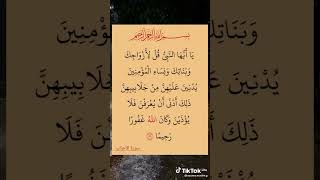 بِسْمِ اللَّهِ الرَّحْمَٰنِ الرَّحِيمِ
يَا أَيُّهَا النَّبِيُّ قُلْ لِأَزْوَاجِكَ
وَبَنَاتِكَ وَنِسَاءِ الْمُؤْمِنِينَ
يُدْنِينَ عَلَيْهِنَّ مِنْ جَلَابِيبِهِنَّ
ذَلِكَ أَدْنَى أَنْ يُعْرَفْنَ فَلَا
يُؤْذَيْنَ وَكَانَ اللَّهُ غَفُورًا
رَحِيمًا
سورة الأحزاب
TikTok